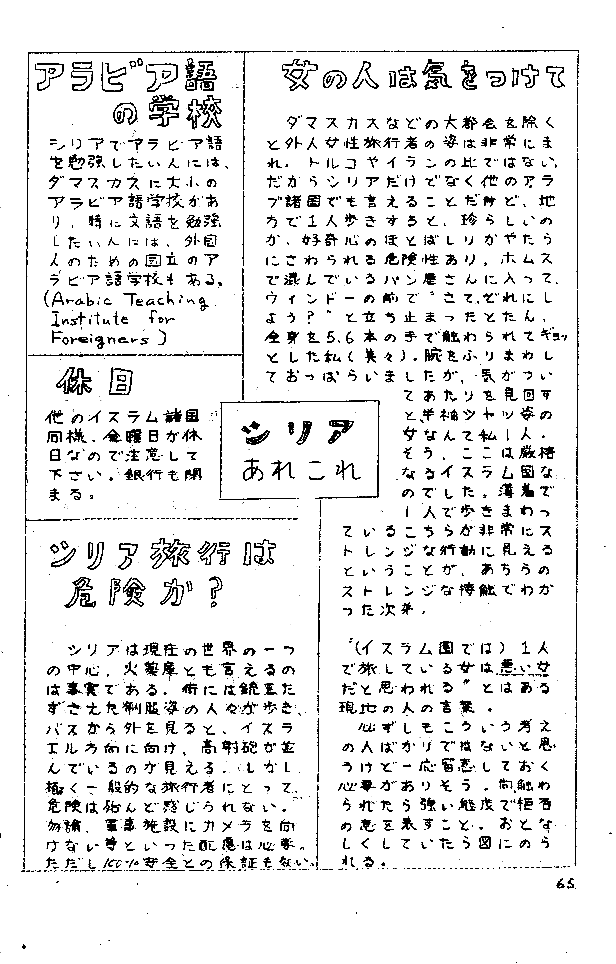 アラビア語
の学校
シリアでアラビア語
を勉強したい人には、
ダマスカスに大小の
アラビア語学校があ
り、特に文語を勉強
したい人には、外国
人のための国立のア
ラビア語学校もある。
(Arabic Teaching
Institute for
Foreigners)
休日
他のイスラム諸国
同様、金曜日が休
日なので注意して
下さい。銀行も閉
まる。
シリア
あれこれ
シリア旅行は
危険か?
シリアは現在の世界の一つ
の中心、火薬庫とも言えるの
は事実である。街には銃をた
ずさえた制服姿の人々が歩き、
バスから外を見ると、イスラ
エル方向に向け、高射砲が並
んでいるのが見える。しかし
極く一般的な旅行者にとって、
危険は殆んど感じられない。
勿論、軍事施設にカメラを向
けない等といった配慮は必要。
ただし100%安全との保証もない。
女の人は気をつけて
ダマスカスなどの大都会を除く
と外人女性旅行者の姿は非常にま
れ。トルコやイランの比ではない。
だからシリアだけでなく他のアラ
ブ諸国でも言えることだけど、地
方で1人歩きすると、珍らしいの
か、好奇心のほとばしりかやたら
にさわられる危険性あり。ホムス
で混んでいるパン屋さんに入って、
ウィンドーの前で“さて、どれにし
よう?”と立ち止まったとたん、
全身を5,6本の手で触わられてギョッ
とした私(美々)。腕をふりまわし
ておっぱらいましたが、気がつい
てあたりを見回す
と、半袖シャツ姿の
女なんて私1人。
そう、ここは厳格
なるイスラム国な
のでした。薄着で
1人で歩きまわっ
ているこちらが非常にス
トレンジな行動に見える
ということが、あちらの
ストレンジな接触でわか
った次第。
“(イスラム圏では)1人
で旅している女は悪い女
だと思われる”とはある
現地の人の言葉。
必ずしもこういう考え
の人ばかりではないと思
うけど一応留意しておく
必要がありそう。尚触わ
られたら強い態度で拒否
の意を表すこと。おとな
しくしていたら図にのら
れる。
65